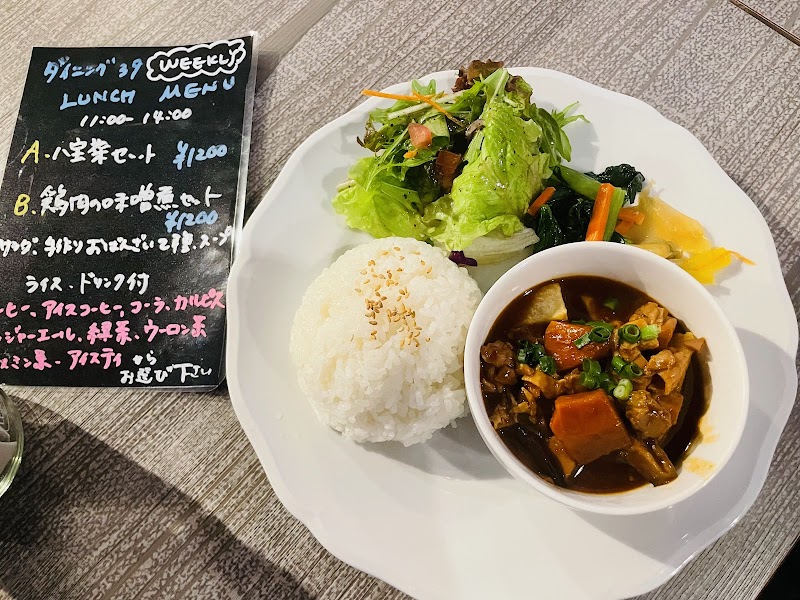 ダイニング39 WEEKLY
LUNCH MENU
11:00-14:00
A.八宝菜セット ¥1200
B.鶏肉の味噌煮セット
¥1200
サラダ、手作りおばんざい2種、スープ
ライス・ドリンク付
ーヒー、アイスコーヒー、コーラ、カルピス
ンジャーエール、紅茶、ウーロン茶
スミン茶、アイスティ から
お選び下さい